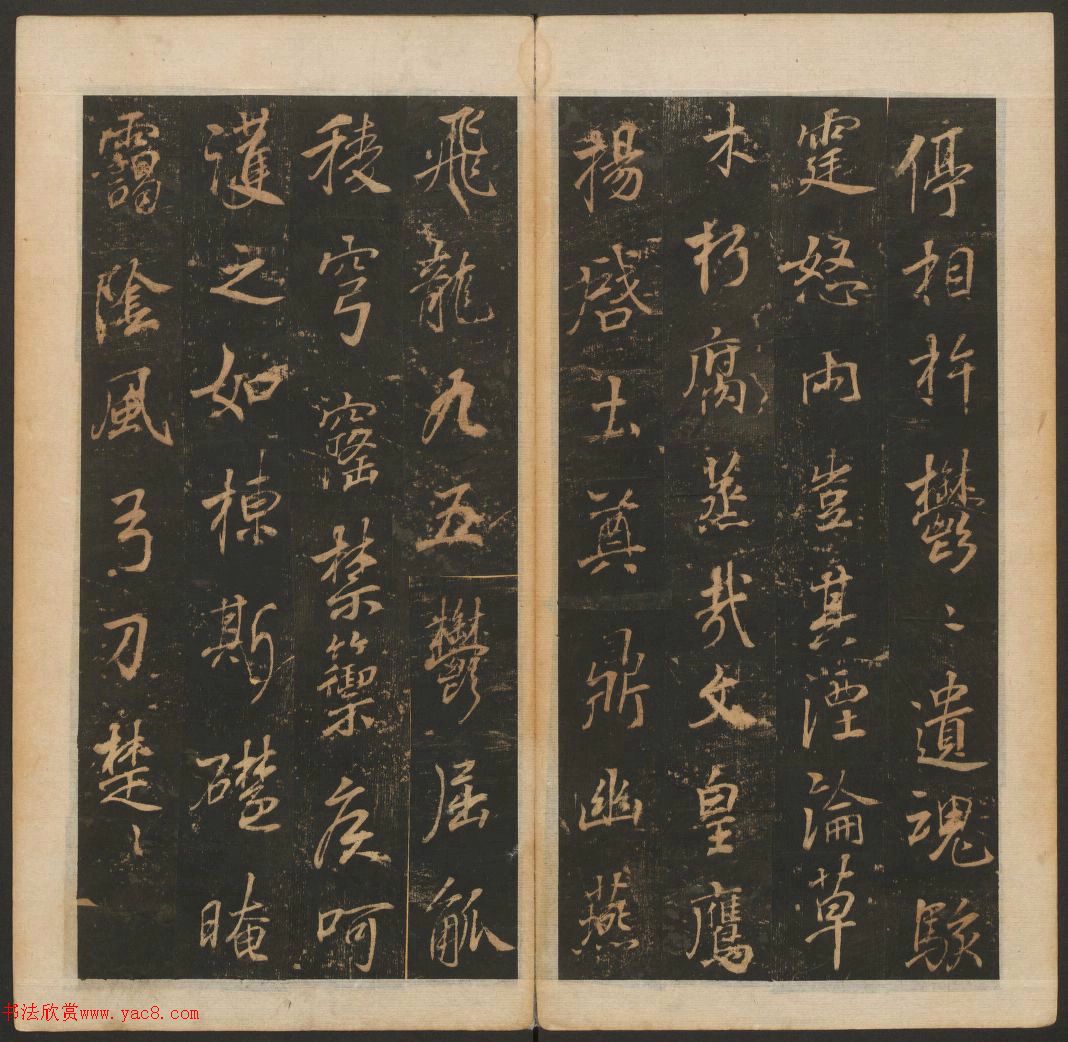 停相杵鬱〻遺魂駭
霆怒雨豈其湮淪草
木朽腐蒸哉文皇鷹
揚啓土奠鼎幽燕
飛龍九五鬱屈觚
稜穹窿禁籞疾呵
護之如棟斯礎晻
靄陰風弓刀楚〻
书法欣赏www.yac8.com